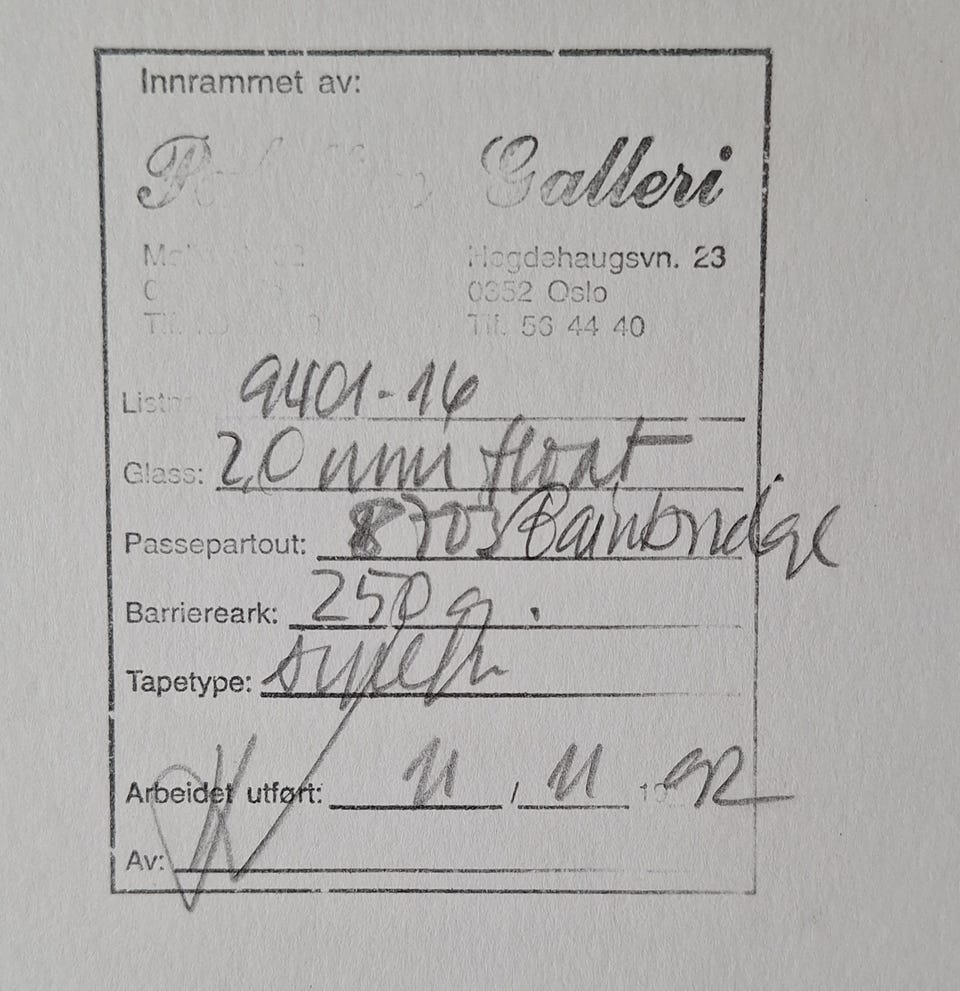 Innrammet av:
Galleri
Hegdehaugsvn. 23
0352 Oslo
Tlf. 56 44 40
Listnr 9401-16
Glass: 2,0 mm float
Passepartout: 8703 Bainbridge
Barriereark: 250 g.
Tapetype:
Arbeidet utført: 11 / 11 1992
Av: